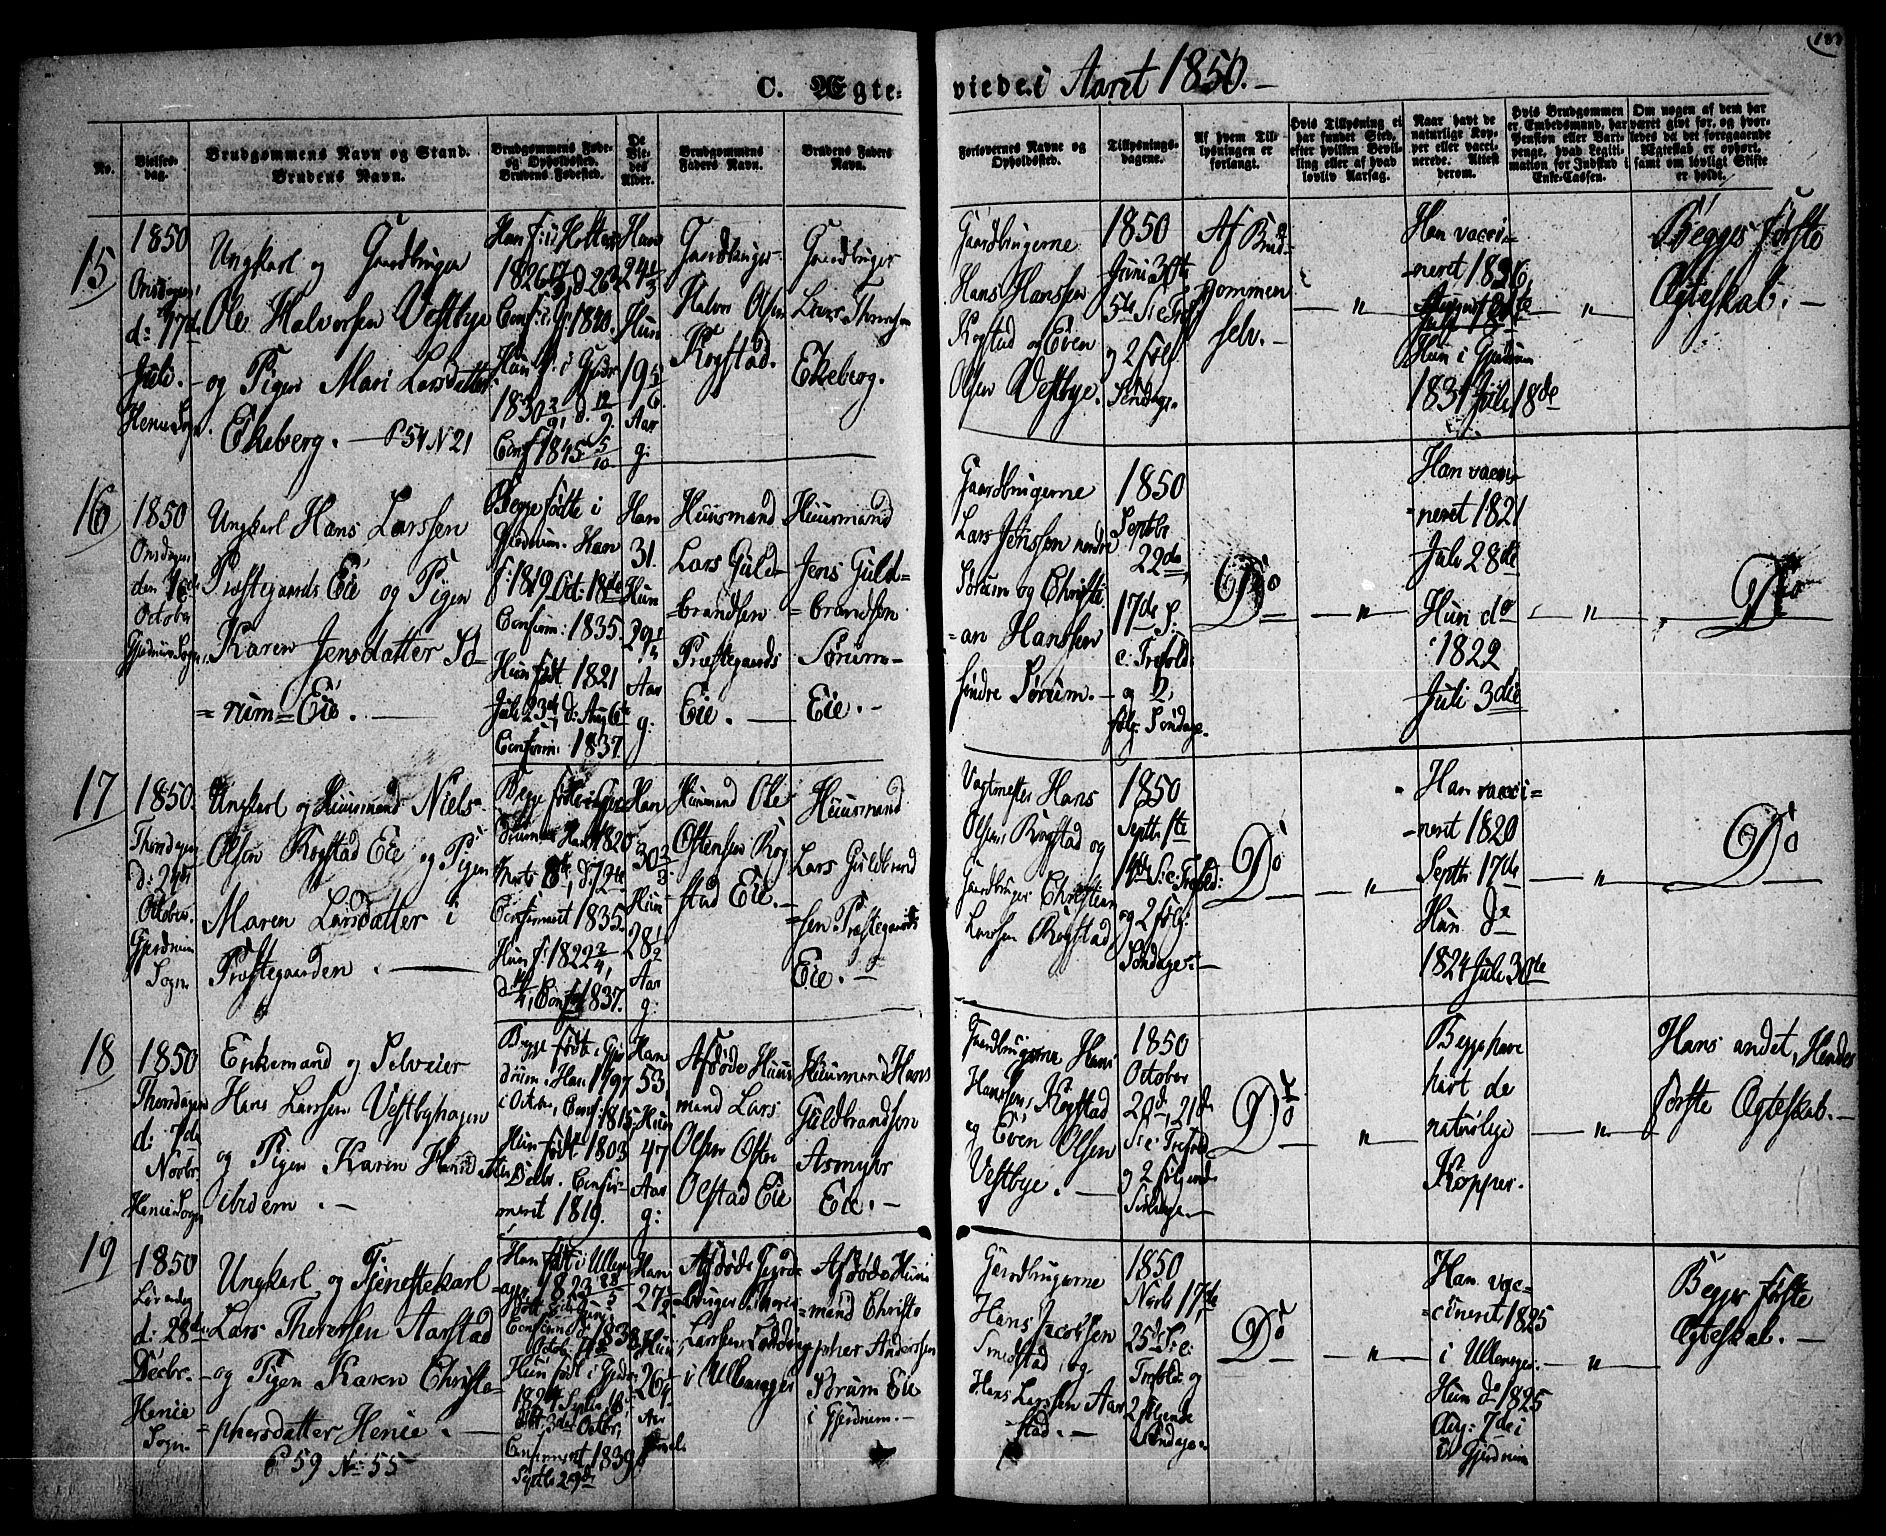 C. Ægte- viede i Aaret 1850.-
No.
Vielses-
dag.
Brudgommens Navn og Stand.
Brudens Navn.
Brudgommens Føde-
og Opholdssted.
Brudens Fødested.
De
Vie-
des
Alder.
Brudgommens
Faders Navn.
Brudens Faders
Navn.
Forlovernes Navne og
Opholdssted.
Tillysnings-
dagene.
Af hvem Til-
lysningen er
forlangt.
Hvis Tillysning ei
har fundet Sted,
efter hvilken Bevil-
ling eller af hvad
lovlig Aarsag.
Naar havt de
naturlige Kop-
per eller vacci-
nerede. Attest
derom.
Hvis Brudgommen
er Embedsmand, har
Pension eller Var-
penge, hvad Legiti-
mation for Indskud i
Enke-Cassen.
Om nogen af dem har
været givt før, og hvor-
ledes da det foregaaende
Ægteskab er ophørt,
samt om lovligt Skifte
er holdt.
15
1850
Onsdagen
d: 17de
Juli.-
Henie Sogn.
Ungkarl og Gaardbruger
Ole Halvorsen Vestbye
og Pigen Mari Larsdatter
Ekeberg. - P 54 N 21
Han
24 1/3
Hun
19 5/6
Aar
g:
Gaardbruger
Halvor Olsen
Kogstad.
Gaardbruger
Ekeberg.
Gaardbrugerne
Hans Hanssen
Kogstad og Even
Olsen Vestbye.
1850
Juni 30te
5te S: e: Tref:
og 2 følg:
Søndage
Af Brud-
gommen
selv.-
"
Han vacci-
neret 1826
Hun i Gjerdrum
1831 Juli 18de
"
Begges første
Ægteskab.-
16
1850
Onsdagen
den 16de
October
Gjerdrum Sogn.
Ungkarl Hans Larssen
Præstegaards Eie og Pigen
Karen Jensdatter Sø-
=rum=Eie.
Begge fødte i
Gjerdrum. Han
f: 1819 Oct: 18de
Confirm: 1835.
Hun født 1821
Juli 23de, d: Aug 6te
Confirm: 1837.
Han
31.
Hun
29 1/4
Aar
g:
Huusmand
Lars Guld-
=brandsen
Præstegaards
Eie.
Huusmand
Jens Guld=
=brandsen
Sørum-
Eie.-
Gaardbrugerne
Lars Jenssen nordre
Sørum og Christi
=an Hanssen
søndre Sørum.-
1850
Septbr
22de,
17de S:
e: Trefold:
og 2
følg: Søndage.
Do
"
Han vacci-
=neret 1821
Juli 28de
Hun do
1822
Juli 3die
"
Do
17
1850.
Thorsdagen
d: 24de
October
Gjerdrum
Sogn
Ungkarl og Huusmand Niels
Olsen Kogstad Eie og Pigen
Maren Larsdatter i
Præstegaarden.
Confirmeret 1835.
Hun f: 1822 2/4,
Conf: 1837.
Han
30 2/3
Hun
28 1/2
Aar
g:
Huusmand Ole
Ostensen Kog
stad Eie.-
Huusmand
Lars Guldbrand
=sen Præstegaards
Eie.-
Vagtmester Hans
Olsen Kogstad og
Gaardbruger Christian
Larssen Kogstad
1850
Septbr 1ste
14de S: e: Trefold:
og 2 følg:
Søndage.-
Do
"
Han vacci=
=neret 1820
Septbr 17de
Hun do
1824 Juli 30te
"
Do
18
1850
Thorsdagen
d: 7de
Novbr.
Henie Sogn
Enkemand og Selveier
Hans Larssen Vestbyhagen
og Pigen Karen Hansdatter
ibidem.-
Begge fødte i Gjer
drum. Han 1797
i Octbr, Conf: 1815,
Hun født 1803
Decbr. Confir-
meret 1819.
Han
53,
Hun
47
Aar
g:
Afdøde Huus
mand Lars
Olsen Ostre
Olstad Eie
Huusmand Hans
Guldbrandsen
Asmyhr
Eie.-
Gaardbrugerne Hans
Hanssen Kogstad
og Even Olsen
Vestbye.-
1850
October
20de, 21de
S: e: Trefold:
og 2 følgende
Søndage.
Do
"
Begge have
havt de
naturlige
Kopper.
"
Hans andet, Hendes
første Ægteskab.-
19
1850
Løverdag
d: 28de
Decbr.
Henie
Sogn.
Ungkarl og Tjenestekarl
Lars Thorersen Aarstad
og Pigen Karen Christo-
=phersdatter Henie.-
P 59 No: 55
Han født i Ullens
Hun født i Gjerdr:
Confirmeret 1839
Septbr 29de
Han
27 1/2
Hun
26 1/4
Aar
Afdøde Gaard-
=bruger Thorer
Larssen
i Ullensager
Afdøde Huus
=mand Christo
=pher Anderssen
Sørum Eie
i Gjerdrum.-
Gaardbrugerne
Hans Jacobsen
Smedstad, og
Hans Larssen Aar
=stad.-
1850
Novbr 17de
25de S: e:
Trefold: og
2 følgende
Søndage.
Do
"
Han vac-
=cineret 1825
i Ullensager.
Hun do 1825
Aug: 7de i
Gjerdrum
"
Begges første
Ægteskab.-